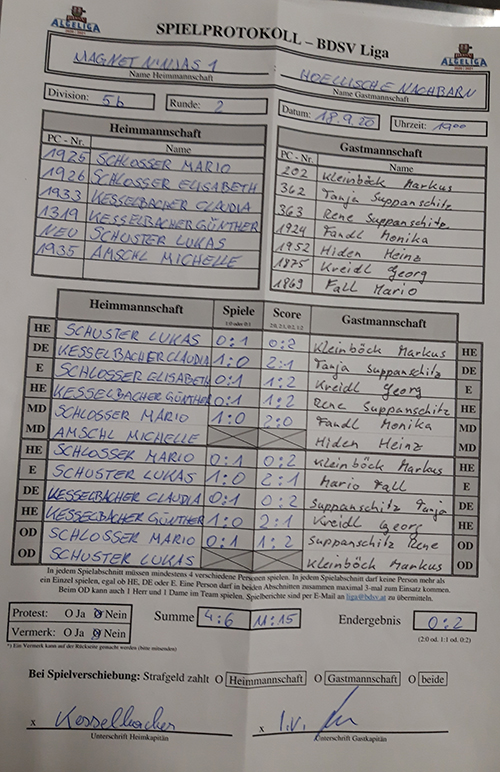 ALGELIGA
SPIELPROTOKOLL – BDSV Liga
ALGELIGA
MAGNET NINJAS 1
Name Heimmannschaft
HOELLISCHE NACHBARN
Name Gastmannschaft
Division: 5b
Runde: 2
Datum: 18.9.20
Uhrzeit: 19⁰⁰
Heimmannschaft
PC - Nr. Name
1925 SCHLOSSER MARIO
1926 SCHLOSSER ELISABETH
1933 KESSELBACHER CLAUDIA
1319 KESSELBACHER GÜNTHER
NEU SCHUSTER LUKAS
1935 AMSCHL MICHELLE
Gastmannschaft
PC - Nr. Name
202 Kleinböck Markus
362 Tanja Suppanschitz
363 Rene Suppanschitz
1924 Fandl Monika
1952 Hiden Heinz
1875 Kreidl Georg
1869 Fall Mario
Heimmannschaft Spiele Score Gastmannschaft
1:0 oder 0:1 2:0, 2:1, 0:2, 1:2
HE SCHUSTER LUKAS 0:1 0:2 Kleinböck Markus HE
DE KESSELBACHER CLAUDIA 1:0 2:1 Tanja Suppanschitz DE
E SCHLOSSER ELISABETH 0:1 1:2 Kreidl Georg E
HE KESSELBACHER GÜNTHER 0:1 1:2 Rene Suppanschitz HE
MD SCHLOSSER MARIO 1:0 2:0 Fandl Monika MD
MD AMSCHL MICHELLE Hiden Heinz MD
HE SCHLOSSER MARIO 0:1 0:2 Kleinböck Markus HE
E SCHUSTER LUKAS 1:0 2:1 Mario Fall E
DE KESSELBACHER CLAUDIA 0:1 0:2 Suppanschitz Tanja DE
HE KESSELBACHER GÜNTHER 1:0 2:1 Kreidl Georg HE
OD SCHLOSSER MARIO 0:1 1:2 Suppanschitz Rene OD
OD SCHUSTER LUKAS Kleinböck Markus OD
In jedem Spielabschnitt müssen mindestens 4 verschiedene Personen spielen. In jedem Spielabschnitt darf keine Person mehr als
ein Einzel spielen, egal ob HE, DE oder E. Eine Person darf in beiden Abschnitten zusammen maximal 3-mal zum Einsatz kommen.
Beim OD kann auch 1 Herr und 1 Dame im Team spielen. Spielberichte sind per E-Mail an liga@bdsv.at zu übermitteln.
Protest: O Ja O Nein
Vermerk: O Ja O Nein
Summe 4:6 11:15
Endergebnis 0:2
(2:0 od. 1:1 od. 0:2)
*) Ein Vermerk kann auf der Rückseite gemacht werden (bitte mitsenden)
Bei Spielverschiebung: Strafgeld zahlt O Heimmannschaft O Gastmannschaft O beide
x Kesselbacher
Unterschrift Heimkapitän
x i.V.
Unterschrift Gastkapitän